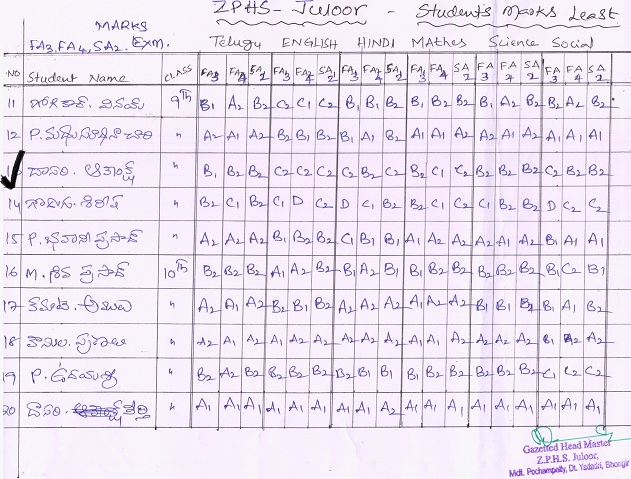 ZPHS- Juloor - Students Marks Least
MARKS
FA3, FA4, SA2. EXM. Telugu ENGLISH HINDI Mathes Science Social
NO Student Name CLASS FA3 FA4 SA2 FA3 FA4 SA2 FA3 FA4 SA2 FA3 FA4 SA2 FA3 FA4 SA2 FA3 FA4 SA2
11 వినయ్ 9th B1 A2 B2 C2 C1 C2 B1 B1 B2 B1 B2 B2 B1 A2 B2 B2 A2 B2
12 P. మధుసూధనాచారి " A2 A1 A2 B2 B1 B2 B1 A1 B2 A1 A1 A2 A2 A1 A2 A1 A1 A1
దాసరి. " B1 B2 B2 C2 C2 C2 C2 B2 C2 B2 C1 C2 B2 B2 B2 C2 B2 B2
14 " B2 C1 B2 C1 D C2 D C1 B2 B2 C1 C2 C1 B2 B2 D C2 C2
15 P. భవాని ప్రసాద్ " A2 A2 A2 B1 B2 B2 C1 B1 B1 A1 A2 A2 A2 A2 A2 B1 A1 A1
16 M. శివ ప్రసాద్ 10th B2 B2 B2 A1 A2 B2 B1 A2 B1 B2 B2 B2 B2 B2 B2 B1 C2 B1
17 " A2 A1 A2 B2 B1 B2 A2 A2 A2 A1 A2 A2 B1 B1 B2 B1 A1 B2
18 " A2 A1 A2 A2 A1 A2 A2 A1 A2 A1 A1 A2 A2 A2 A2 B1 A2 A2
19 P. " B2 A2 B2 B2 B2 B2 B2 B1 B1 B1 B2 B2 B2 B2 B2 C1 C2 C2
20 దాసరి. కీర్తి " A1 A1 A1 A1 A1 A1 A1 A1 A2 A1 A1 A1 A1 A1 A1 A1 A1 A1
Gazetted Head Master
Z.P.H.S. Juloor,
Mdl. Pochampally, Dt. Yadadri, Bhongir